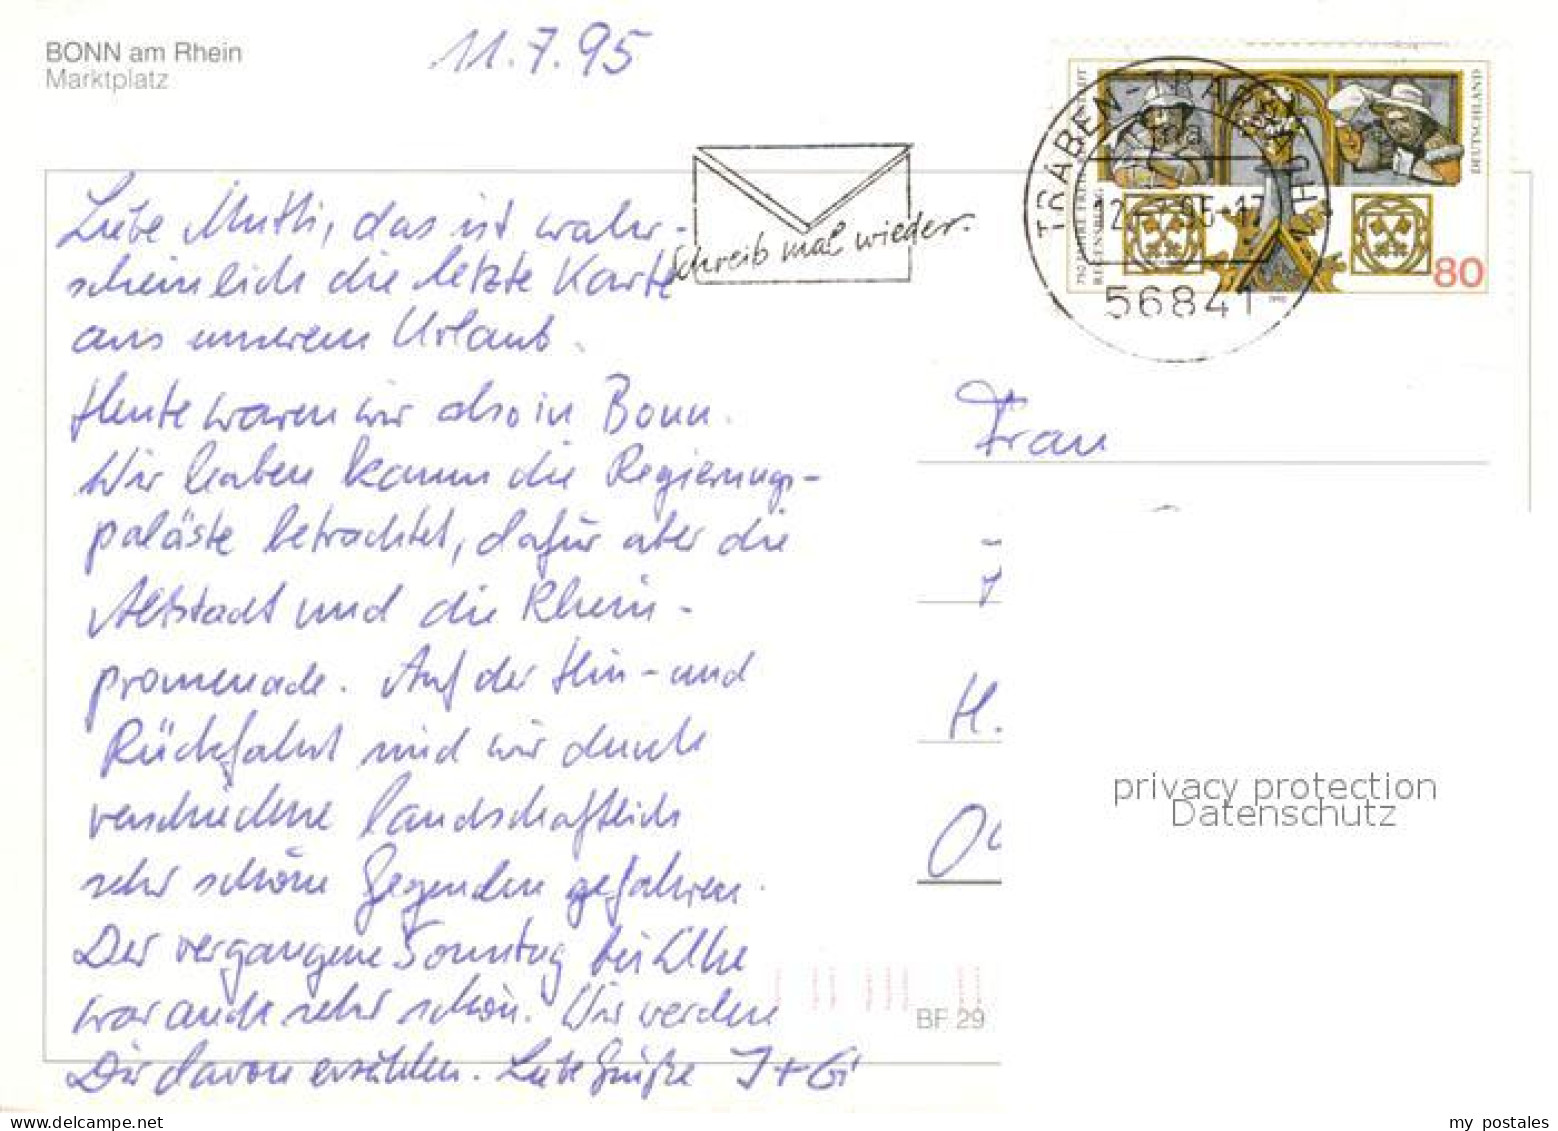 BONN am Rhein
Marktplatz
11.7.95
TRABEN-TRARBACH
12.-7.95-17
56841
750 JAHRE FREIE REICHSSTADT
REGENSBURG
DEUTSCHLAND
80
1995
Schreib mal wieder.
Liebe Mutti, das ist wahr-
scheinlich die letzte Karte
aus unserem Urlaub.
Heute waren wir also in Bonn.
Wir haben kaum die Regierungs-
paläste betrachtet, dafür aber die
Altstadt und die Rhein-
promenade. Auf der Hin- und
Rückfahrt sind wir durch
verschiedene landschaftlich
sehr schöne Gegenden gefahren.
Der vergangene Sonntag bei Elke
war auch sehr schön. Wir werden
Dir davon erzählen. Liebe Grüße J + Gi
Frau
H.
BF 29
privacy protection
Datenschutz
my postales